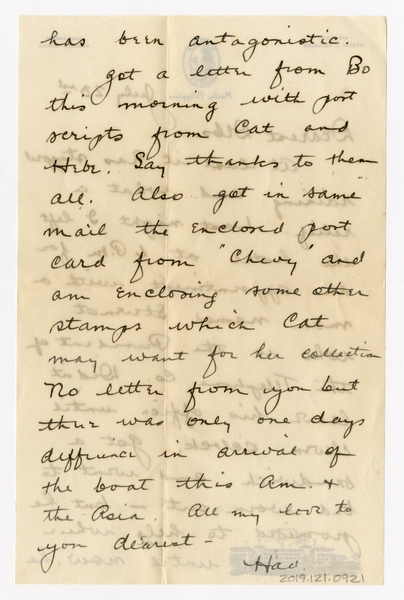 has been antagonistic.
Got a letter from Bo
this morning with post
scripts from Cat and
Hebe. Say thanks to them
all. Also got in same
mail the enclosed post
card from "Chevy" and
am enclosing some other
stamps which Cat
may want for her collection
No letter from you but
there was only one days
diffrince in arrival of
the boat this Am. &
the Asia. All my love to
you dearest -
Had.
2019.121.0921